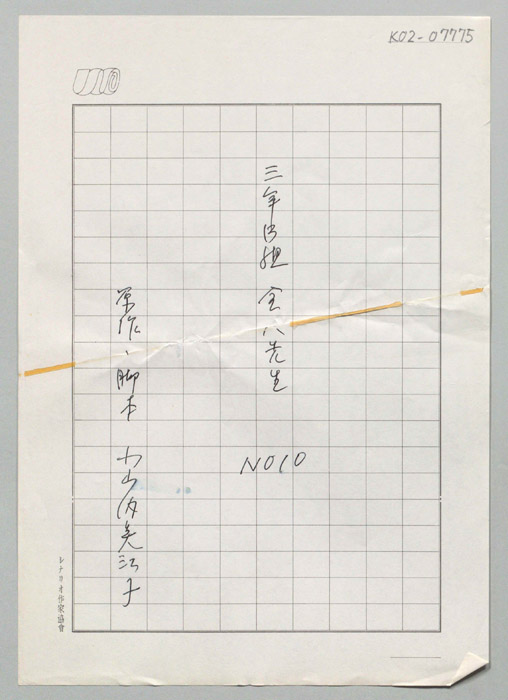 K02-07775
三年B担 金八先生
NO10
原作・脚本 小山内美江子
シナリオ作家協會